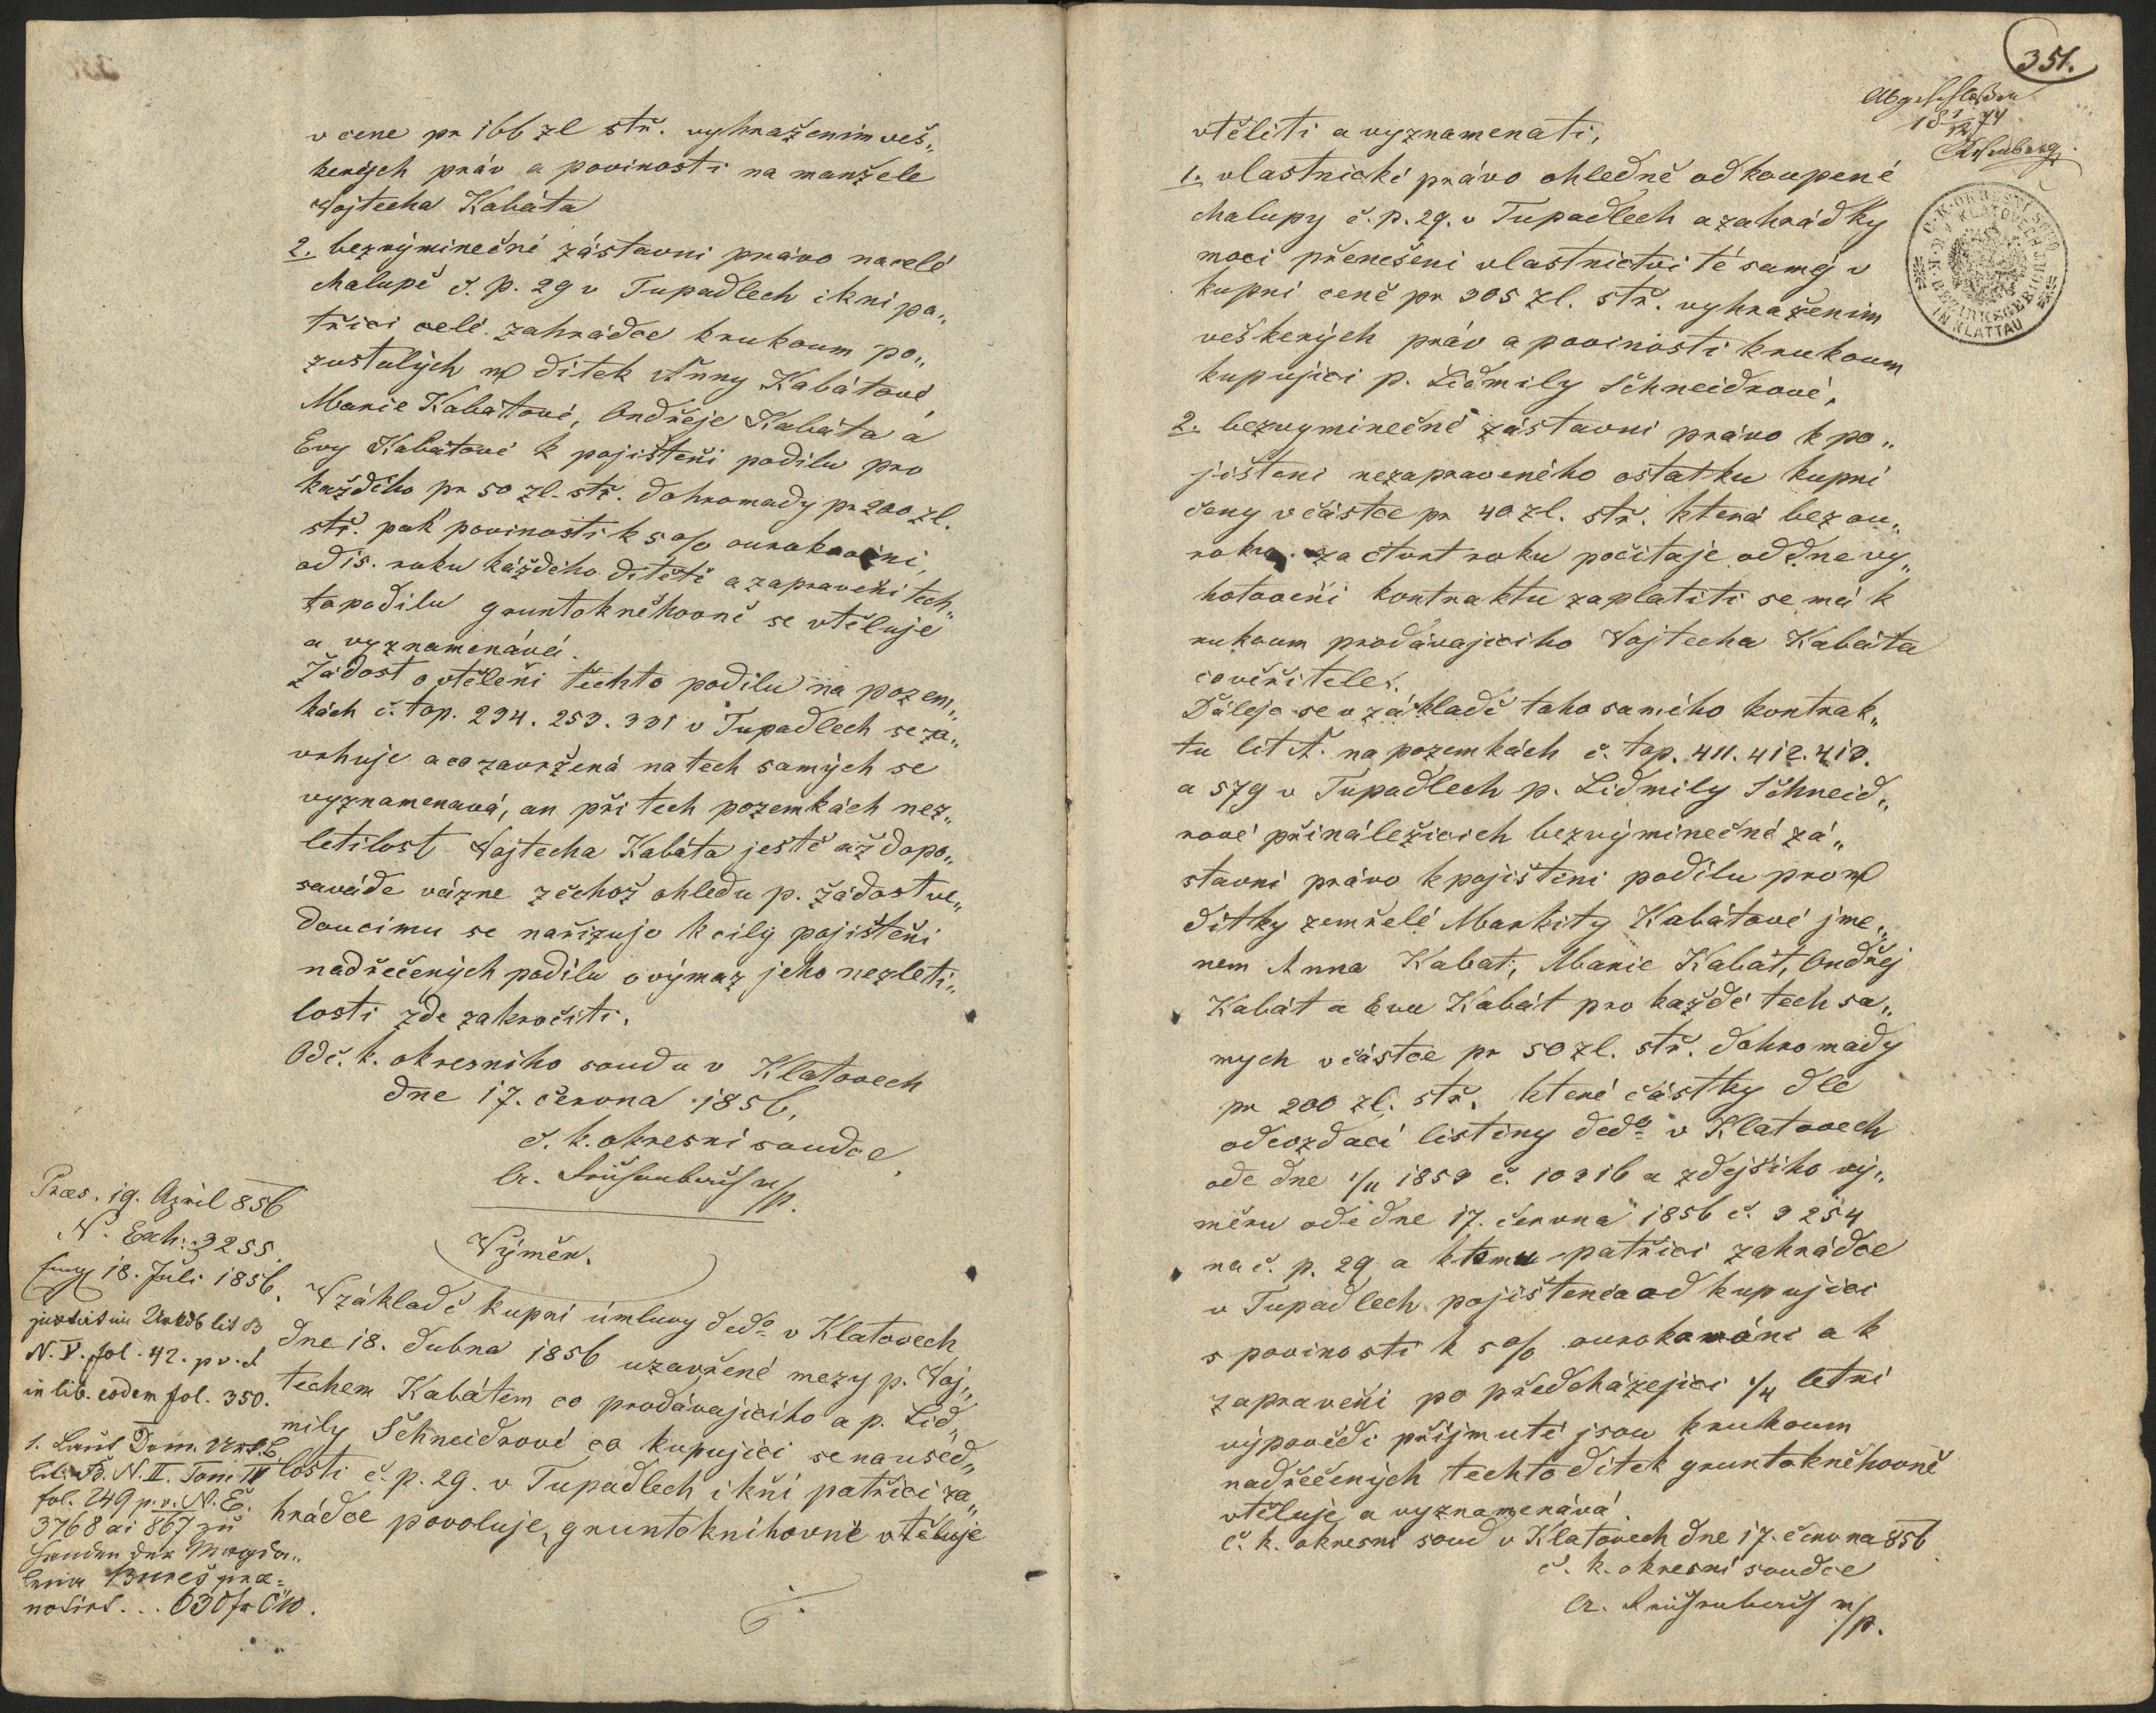 v cene pr 166 zl stř. vyhraženim veš„
kerých práv a povinosti na manžele
Wojtecha Kabáta
2. bezvýminečné zástavni právo na celé
chalupě č. p. 29 v Tupadlech i kni pa„
třici celé zahrádce krukoum po„
zustalých ditek Anny Kabátové,
Marie Kabátové, Ondřeje Kabáta a
Evy Kabátové k pojišteňi podilu pro
každého pr 50 zl. stř. dohromady pr 200 zl.
stř. pak povinosti k 5% ourokováni,
od 15. roku káždého ditětě a zapraveňi tech„
to podilu gruntokněhovně se vtěluje
a vyznamenává.
Žádost o vtěleňi těchto podilu na pozem„
kách č. top. 234. 253. 331 v Tupadlech se za„
vrhuje a co zavržená na tech samých se
vyznamenavá, an při tech pozemkách nez„
letilost Wojtecha Kabáta ještě až dopo„
saváde vázne z čehož ohledu p. žádost ve„
doucimu se nařizuje k cily pojišteňi
nadřečených podilu o výmaz jeho nezleti„
losti zde zakročiti.
Od c. k. okresniho soudu v Klatovech
dne 17. června 1856.
c. k. okresni soudce
m/p.
Præs. 19. April 856
N. Exh: 3255.
18. Juli 1856.
lit B
N. V. fol. 42. p. v. &
in lib. eodem fol. 350.
Výměr.
V základě kupni úmluvy ddo v Klatovech
dne 18. dubna 1856 uzavřené mezy p. Voj„
techem Kabátem co prodávajiciho a p. Lid„
mily Schneidrové co kupujici se na used„
losti č. p. 29. v Tupadlech i kňi patřici za„
hrádce povoluje, gruntoknihovně vtěluje
1. Laut Dom. Urk. B.
lit. B. N. II. Tom IV
fol. 249 p. v. N. E.
3768 ai 867 zu
Handen der Magda„
lena Bureš præ=
notirt... 630 fr ÖW.
351.
Abgeschloßen
18 1/12 74
vtěliti a vyznamenati,
1. vlastnické právo ohledně odkoupené
chalupy č. p. 29. v Tupadlech a zahrádky
moci přenešeni vlastnictvi té samý v
kupni ceně pr 305 zl. stř. vyhraženim
veškerých práv a povinosti krukoum
kupujici p. Lidmily Schneidrové,
2. bezvyminečné zástavni právo k po„
jišteni nezapraveného ostatku kupni
ceny v částce pr 40 zl. stř. která bez ou„
roku za čtvrt roku počitaje od dne vy„
hotoveňi kontraktu zaplatiti se má k
rukoum prodávajiciho Wojtecha Kabáta
co věřitele.
Dáleje se v základě toho samého kontrak„
tu lit A. na pozemkách č. top. 411. 412. 413.
a 579 v Tupadlech p. Lidmily Schneid„
rové přináležicich bezvýminečné zá„
stavni právo k pojišteni podilu pro
ditky zemřelé Markity Kabátové jme„
nem Anna Kabat, Marie Kabát, Ondřej
Kabát a Eva Kabát pro každé tech sa„
mych v částce pr 50 zl. stř. dohromady
pr 200 zl. stř. které částky dle
odevzdaci listiny ddo v Klatovech
ode dne 1/11 1853 č. 10216 a zdejšiho vý„
měru ode dne 17. června 1856 č. 3254
na č. p. 29 a k tomu patřici zahrádce
v Tupadlech pojištenia od kupujici
s povinosti k 5% ourokováni a k
zapraveňi po předcházejici 1/4 letni
výpovědi přijmuté jsou krukoum
nadřečených techto ditek gruntokněhovně
vtěluje a vyznamenává.
C. k. okresni soud v Klatovech dne 17. června 856
c. k. okresni soudce
m/p.
C. K. OKRESNÍ SOUD
V KLATOVECH
K. K. BEZIRKSGERICHT
IN KLATTAU